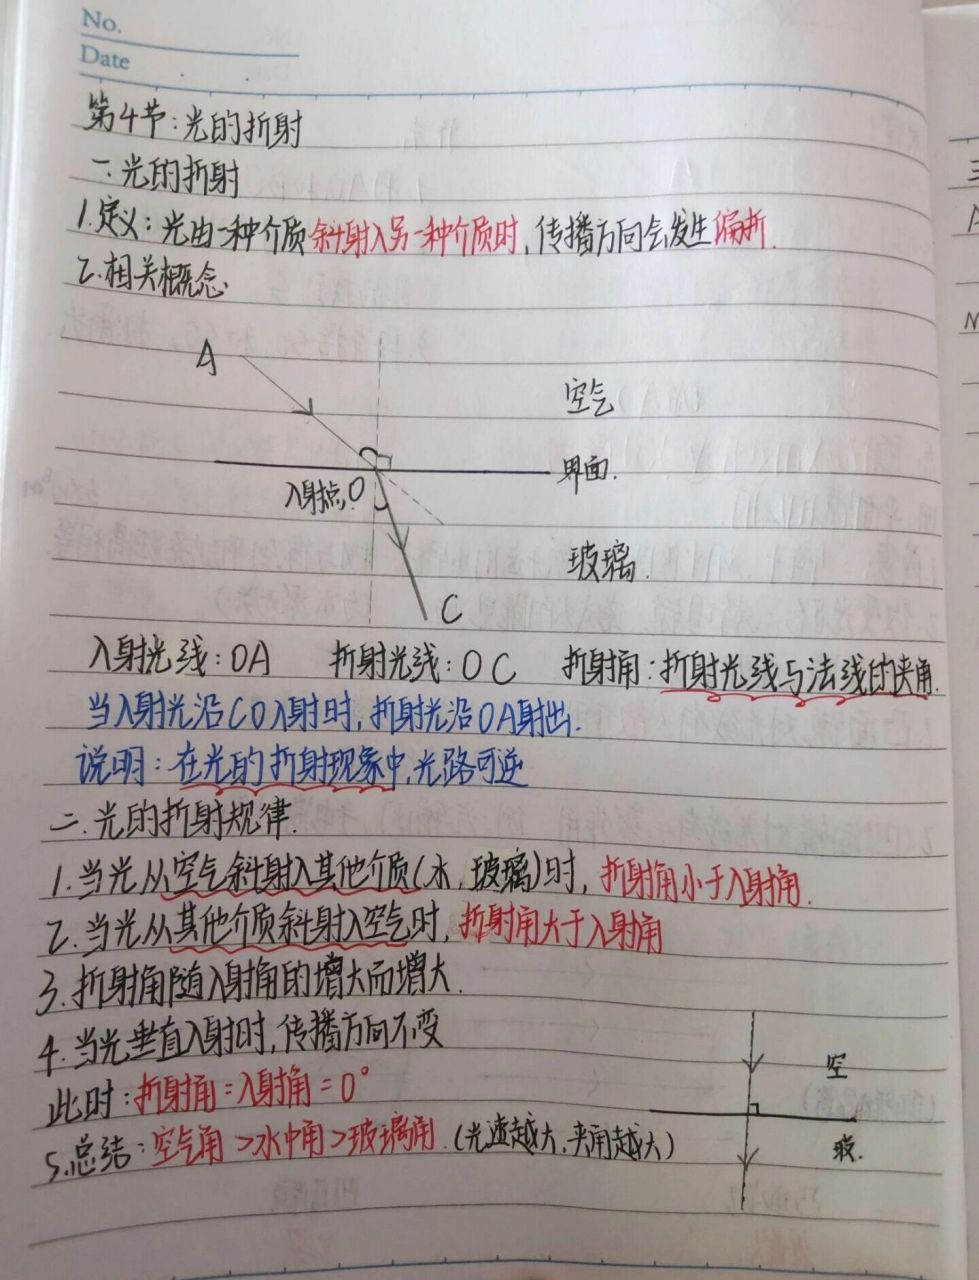 No.
Date
第4节:光的折射
一.光的折射
1.定义:光由一种介质斜射入另一种介质时,传播方向会发生偏折.
2.相关概念.
A
空气
界面.
入射点O
玻璃.
C
入射光线:OA 折射光线:OC 折射角:折射光线与法线的夹角.
当入射光沿CO入射时,折射光沿OA射出.
说明:在光的折射现象中,光路可逆
二.光的折射规律.
1.当光从空气斜射入其他介质(水,玻璃)时,折射角小于入射角.
2.当光从其他介质斜射入空气时,折射角大于入射角
3.折射角随入射角的增大而增大.
4.当光垂直入射时,传播方向不变
空
此时:折射角=入射角=0°
5.总结:空气角>水中角>玻璃角.(光速越大,夹角越大)
玻.